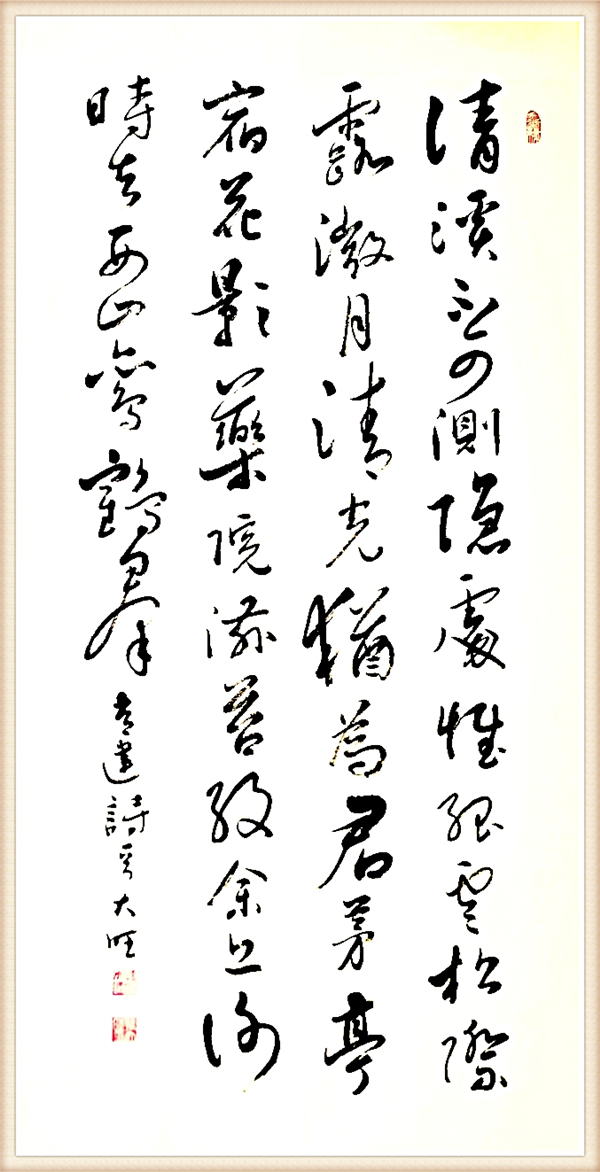 清溪不可測隱處惟孤雲松際
露微月清光猶為君茅亭
宿花影藥院滋苔紋余亦謝
時去西山鸞鶴羣 常建詩 大旺